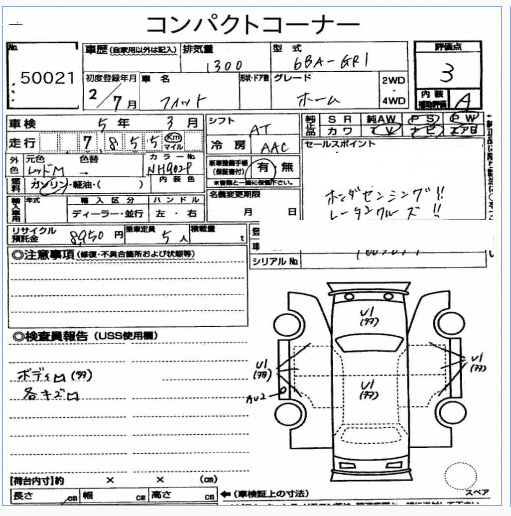 コンパクトコーナー
No. 50021
車歴 (自家用以外は記入) 排気量 1300 型式 6BA-GR1
評価点 3
内装補助評価 A
初度登録年月 2/7月 車名 フィット 形状・ドア数 グレード ホーム 2WD・4WD
車検 5年3月
走行 7855 Km マイル
シフト AT
冷房 AAC
純正品 SR 純AW PS PW
カワ TV ナビ エアB
セールスポイント
ホンダセンシング!!
レーダークルーズ!!
外色 元色 レッドM→ 色替 カラーNo. NH902P
燃料 ガソリン・軽油・( ) 内装色
新車整備手帳(保証書付) 有 無
※書類と一緒に提出
名義変更期限
月 日
輸入車用 年式 輸入区分 ハンドル
ディーラー・並行 左・右
リサイクル預託金 8950円 乗車定員 5人 積載量 t
シリアルNo
◎注意事項(修復・不具合箇所および状態等)
◎検査員報告(USS使用欄)
ボディ凹(93)
各キズ凹
U1
U1
U1
U1
AU2
【荷台内寸】約 × × (cm)
長さ cm 幅 cm 高さ cm
←(車検証上の寸法)
スペア